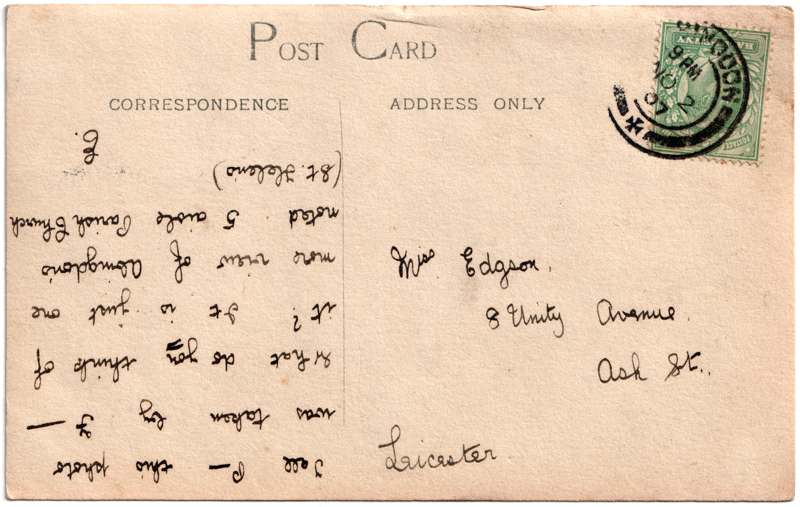 POST CARD
CORRESPONDENCE
ADDRESS ONLY
INGDON
9 PM
NO 2
07
HALFPENNY
Miss Edgson,
8 Unity Avenue.
Ash St.,
Leicester
Tell P— this photo
was taken by F—
What do you think of
it? It is just one
more view of Abingdon's
noted 5 aisle Parish Church
(St. Helens)
E.